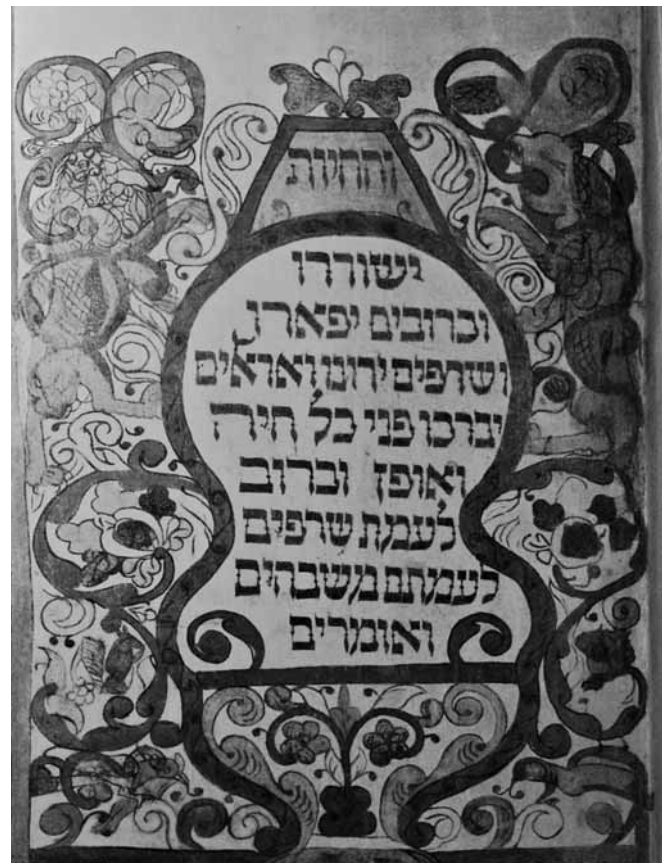 והחיות
ישוררו
וכרובים יפארו
ושרפים ירונו ואראלים
יברכו פני כל חיה
ואופן וכרוב
לעמת שרפים
לעמתם משבחים
ואומרים